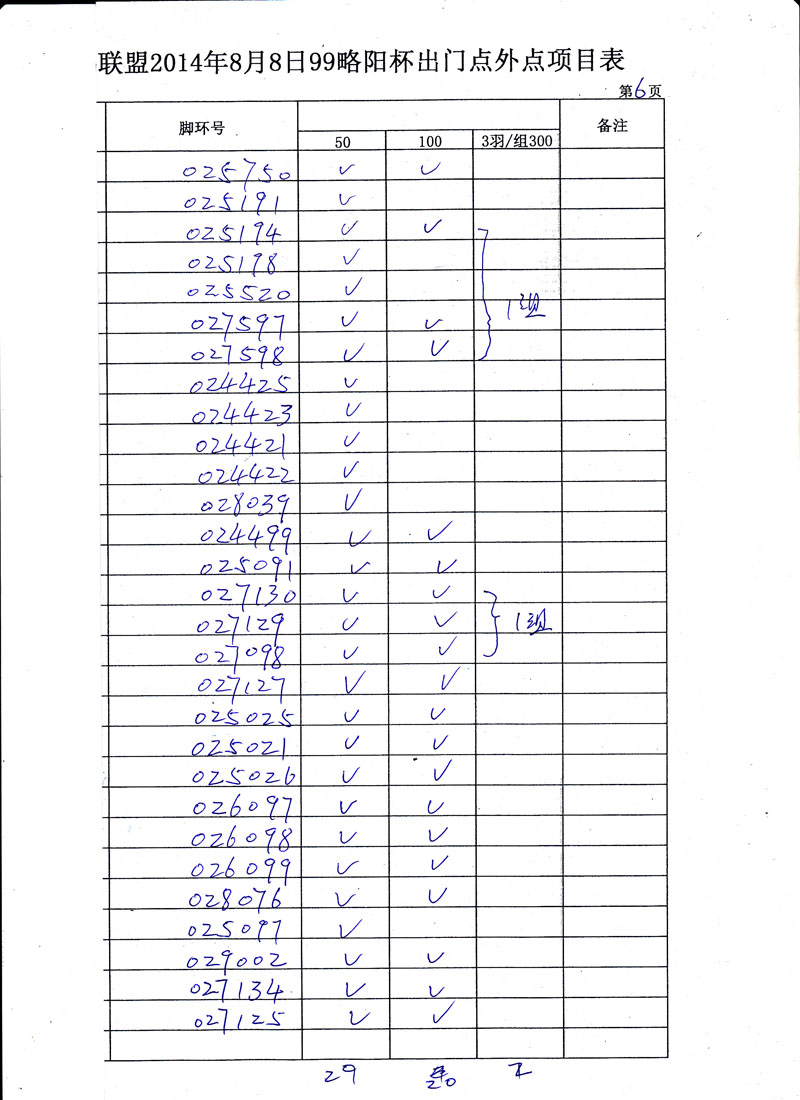 联盟2014年8月8日99略阳杯出门点外点项目表
第6页
脚环号 50 100 3羽/组300 备注
025750 ✓ ✓
025191 ✓
025194 ✓ ✓
025198 ✓
025520 ✓
027597 ✓ ✓ 1组
027598 ✓ ✓
024425 ✓
024423 ✓
024421 ✓
024422 ✓
028039 ✓
024499 ✓ ✓
025091 ✓ ✓
027130 ✓ ✓
027129 ✓ ✓ 1组
027098 ✓ ✓
027127 ✓ ✓
025025 ✓ ✓
025021 ✓ ✓
025026 ✓ ✓
026097 ✓ ✓
026098 ✓ ✓
026099 ✓ ✓
028076 ✓ ✓
025097 ✓
029002 ✓ ✓
027134 ✓ ✓
027125 ✓ ✓
29 20